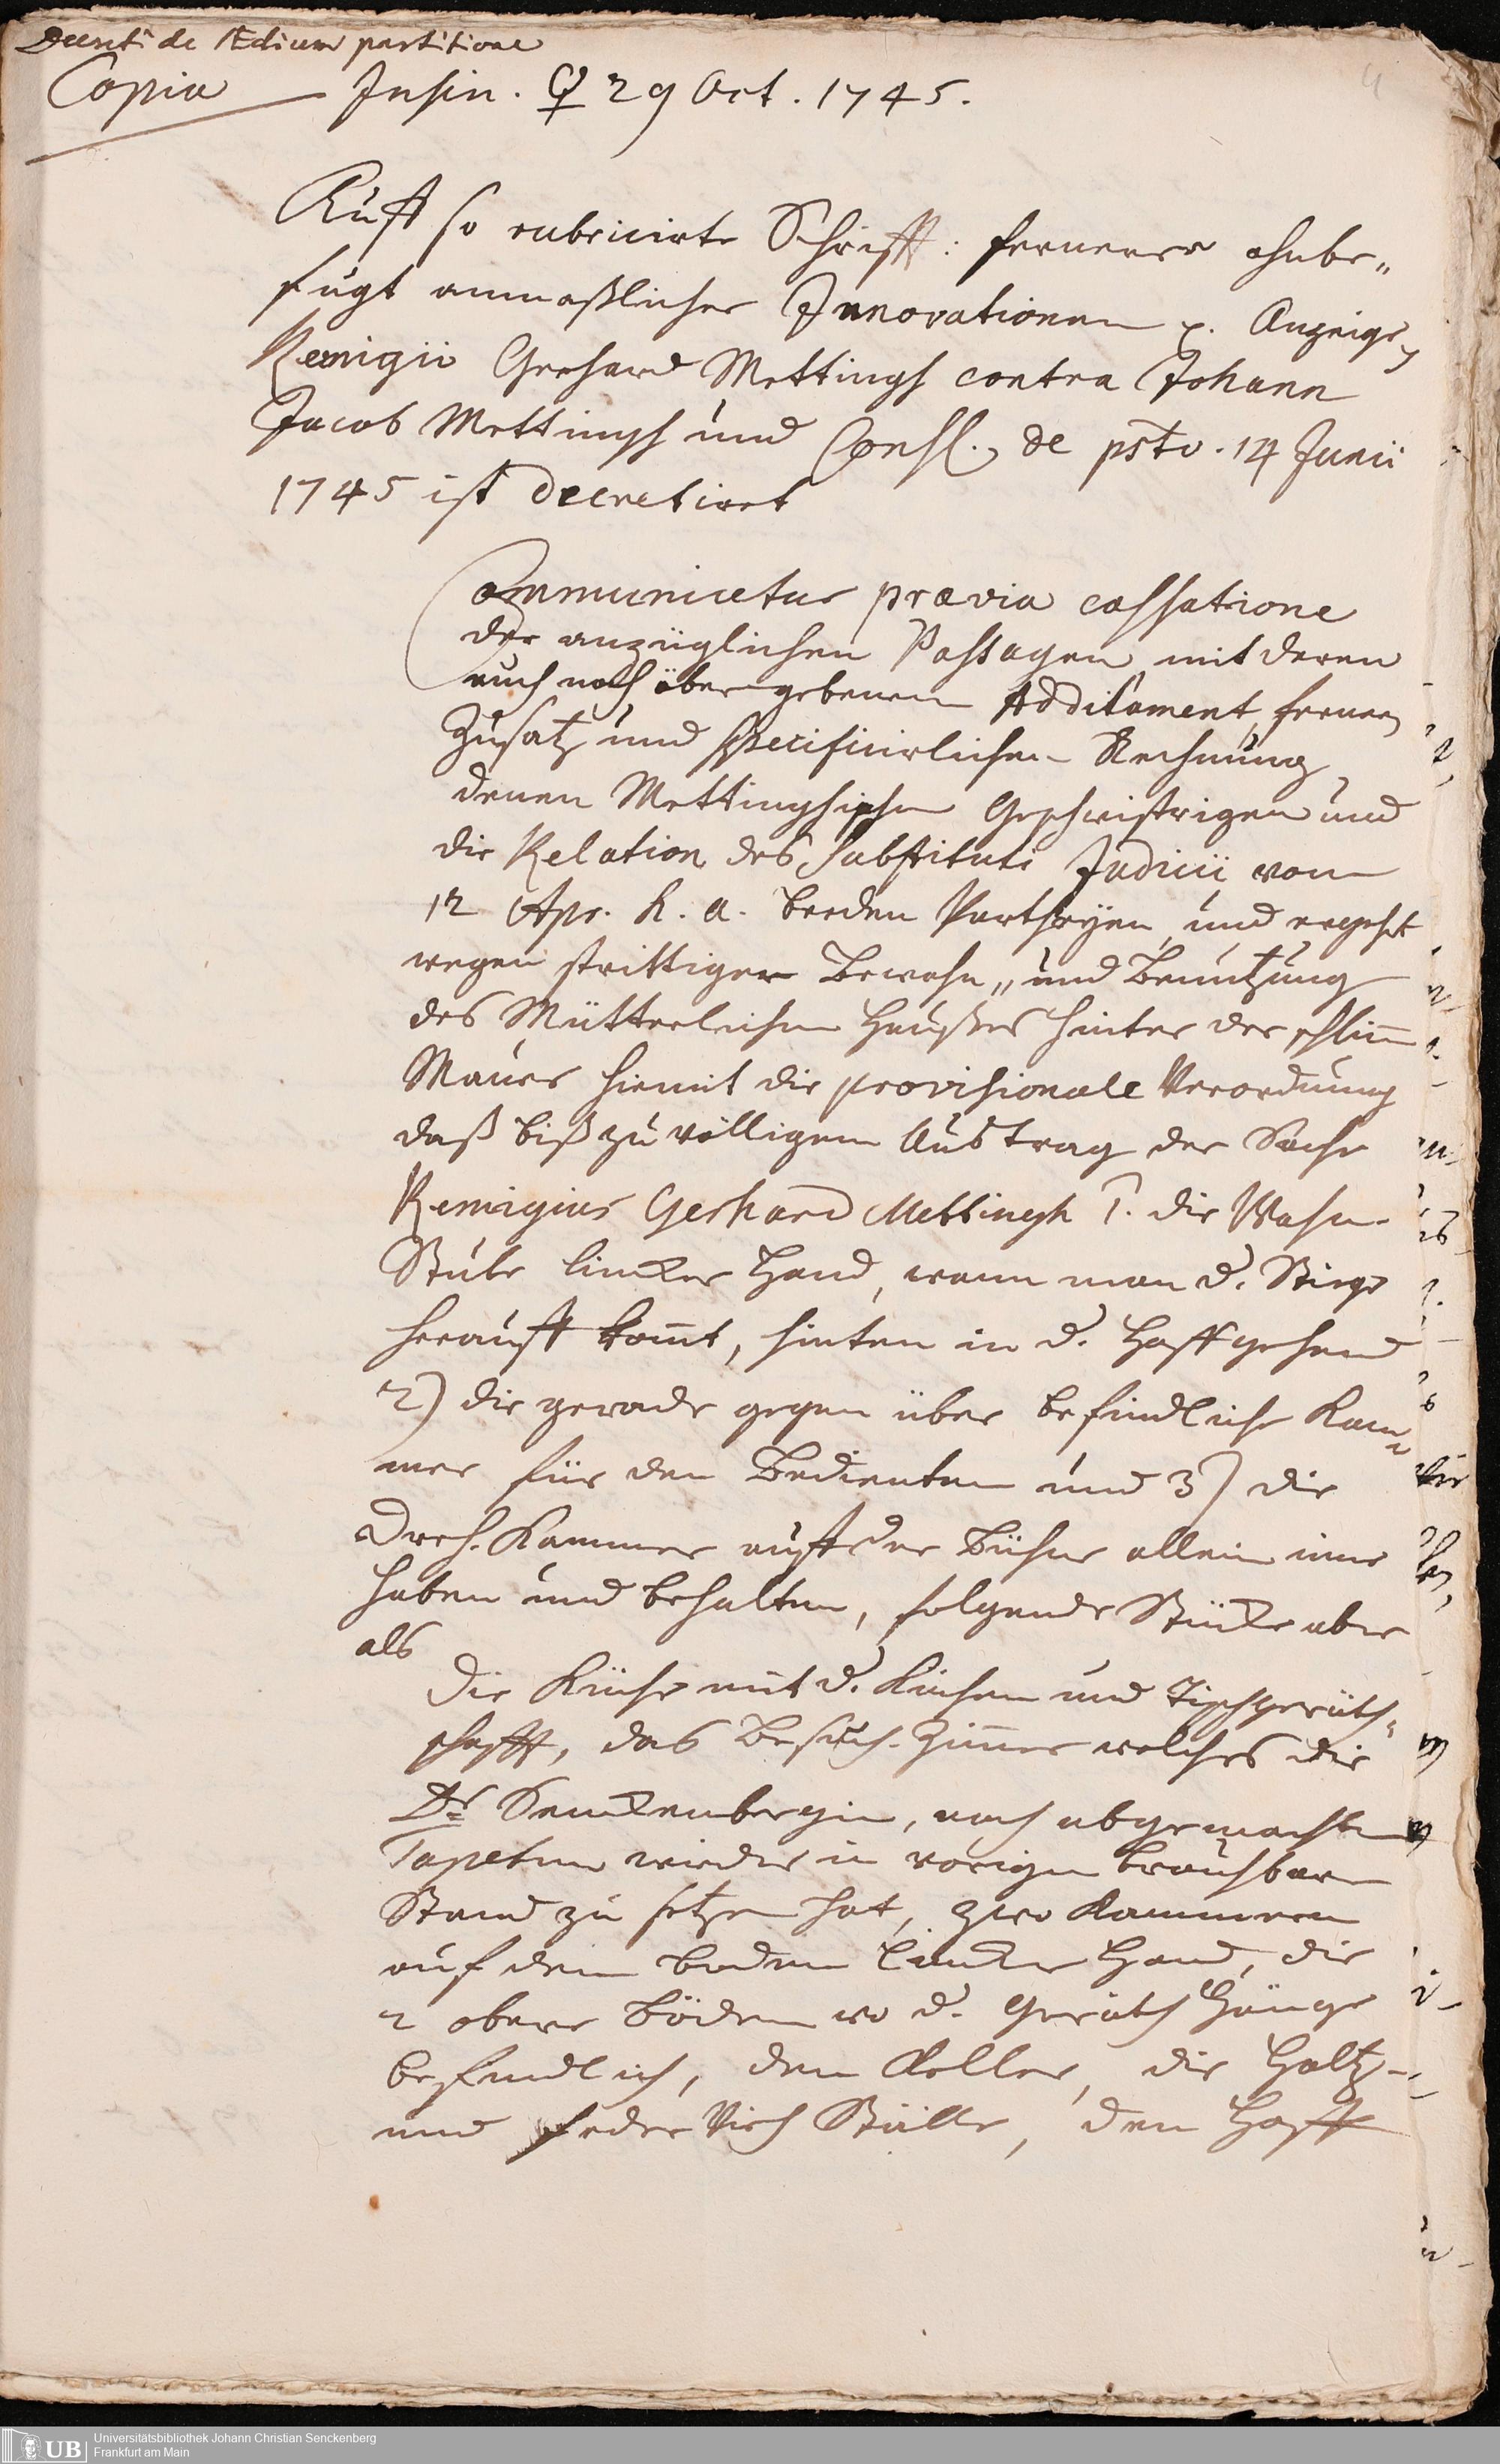 Decreti de Ædium partitione
Copia Insin. ♀ 29 Oct. 1745.
4
Auff so rubricirte Schrifft: fernerer ohnbe„
fugt anmaßlicher Innovationen p. Anzeige
Remigii Gerhard Mettingh contra Johann
Jacob Mettingh und Cons. de psto. 14 Junii
1745 ist decretiret
Communicetur prævia cassatione
der anzüglichen Passagen mit deren
auch noch übergebenen Additament, fernern
Zusatz und specificirlichen Rechnung
denen Mettinghischen Geschwistrigen und
die Relation des Substituti Judicii vom
12 Apr. h. a. beeden Partheyen, und ergehet
wegen strittiger Bewohn„ und Benutzung
des Mütterlichen Haußes hinter der schlim̅
Mauer hiemit die provisionale Verordnung
daß biß zu völligem Austrag der Sache
Remigius Gerhard Mettingh 1. die Wohn-
Stube lincker Hand, wann man d. Stiege
herauff kom̅t, hinten in d. Hoff gehend
2) die gerade gegen über befindliche Kam„
mer für den Bedienten und 3) die
Dreh-Kammer auff der Bühne allein inne
haben und behalten, folgende Stücke aber
als
die Küche mit d. Küchen und Tischgeräth„
schafft, das Besuch-Zim̅er welches die
Dr Senckenbergin, nach abgemachten
Tapeten wieder in vorigen brauchbaren
Stand zu setzen hat, zwo Kammern
auf dem Boden lincker Hand, die
2 obere Böden wo d. Geräth Hänge
befindlich, den Keller, die Holtz-
und Feder Vieh Ställe, den Hoff
Universitätsbibliothek Johann Christian Senckenberg
Frankfurt am Main
UB